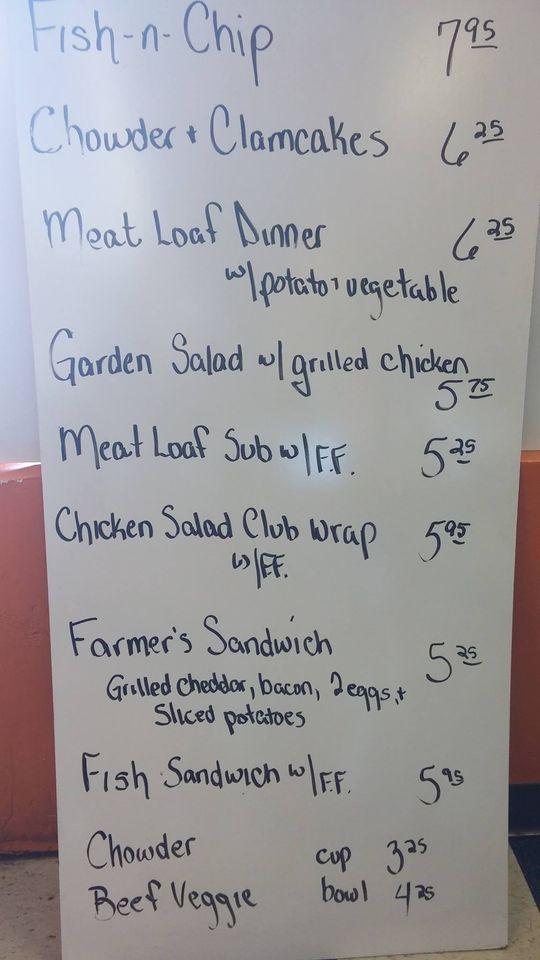 Fish-n-Chip 7 95
Chowder + Clamcakes 6 25
Meat Loaf Dinner 6 25
w/potato + vegetable
Garden Salad w/grilled chicken
5 75
Meat Loaf Sub w/F.F. 5 25
Chicken Salad Club Wrap 5 95
w/F.F.
Farmer's Sandwich 5 25
Grilled cheddar, bacon, 2 eggs, +
Sliced potatoes
Fish Sandwich w/F.F. 5 95
Chowder cup 3 25
Beef Veggie bowl 4 25